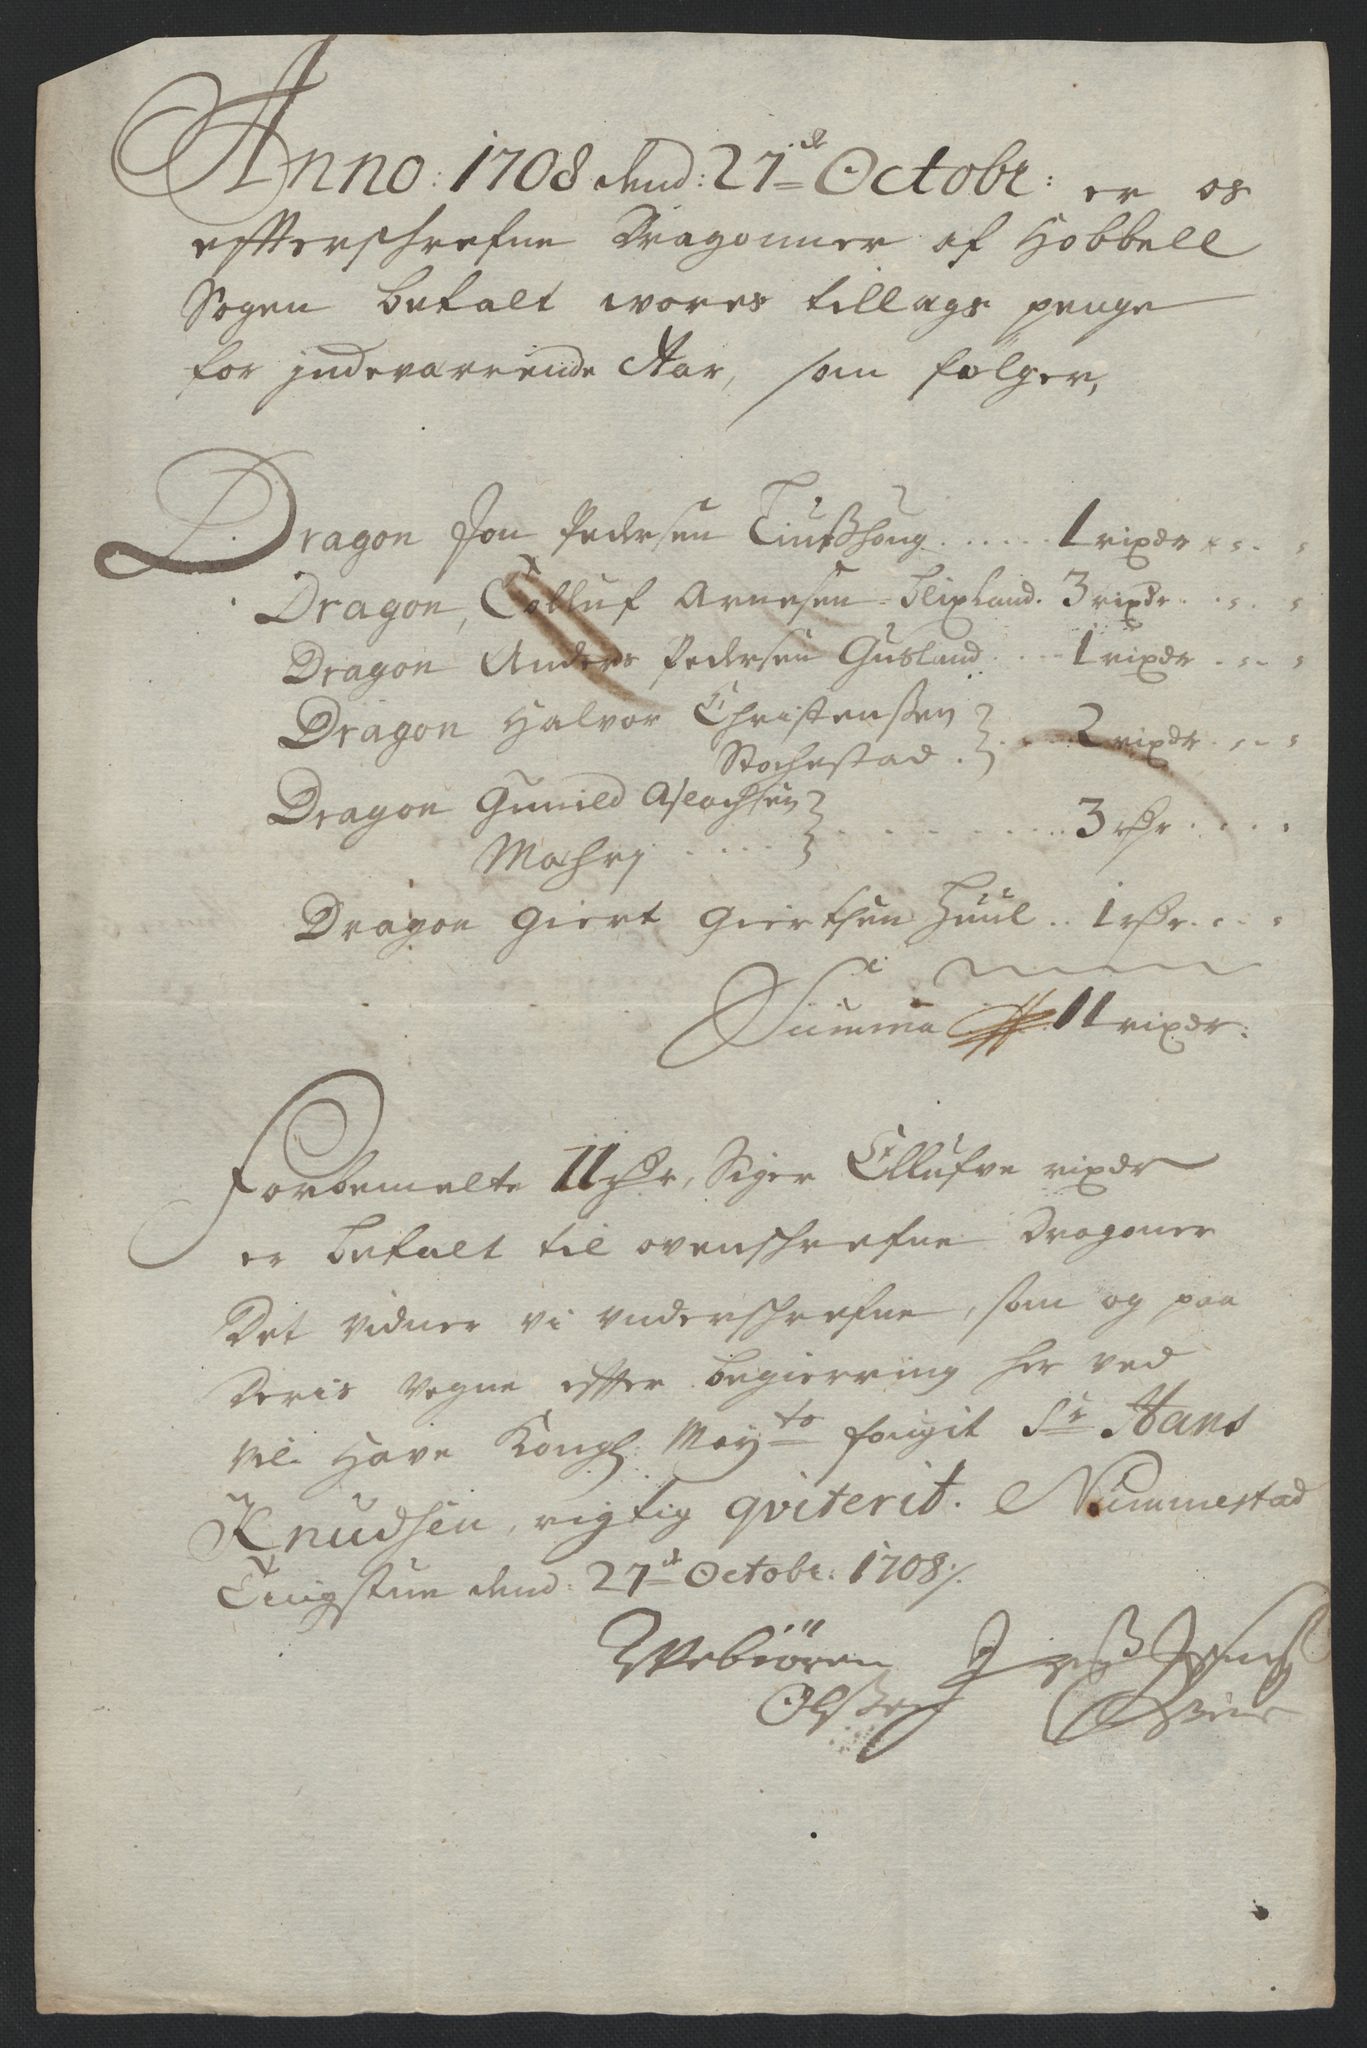 Anno: 1708 dend: 27de Octobr: er os
effterschrefne Dragonner af Hobbell
Sogen betalt wores tillags penge
for jndeværrende Aar, som følger,
Dragon Jon Pedersen 1 rixdr
Dragon, Tolluf Arnesen Blixland. 3 rixdr
Dragon Anders Pedersen Gusland 1 rixdr
Dragon Halvor Christenßen
Stochestad 2 rixdr
Dragon Gunild Aslachsen
Mæhrj 3 rdr
Dragon Giert Giertsen Huul 1 rdr
Summa 11 rixdr:
Forbemelte 11 rdr, Siger Ellufve rixdr
er betalt til ovenschrefne Dragoner
Det vidner vi vnderschrefne, som og paa
Deris vegne effter begierring her ved
vil have Kongl: Mayts fougit Sr Hans
Knudsen, rigtig qviterit. Nimmestad
Tingstue dend: 27de Octobr: 1708 /.
Webiören
Olßen